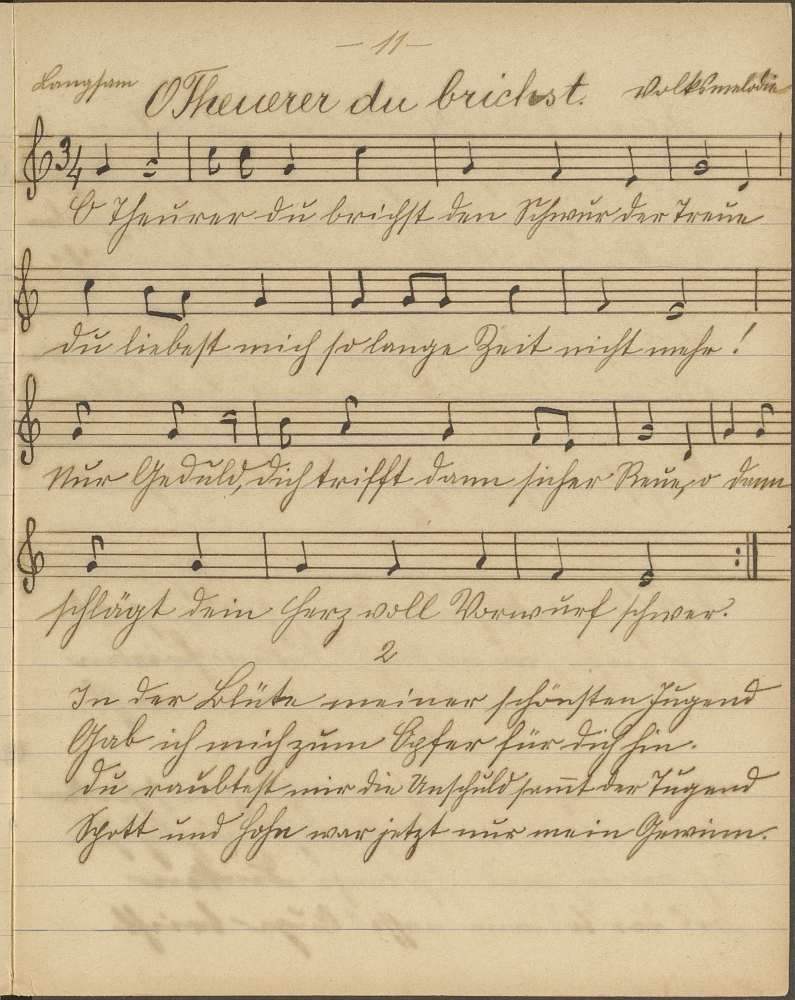 — 11 —
Langsam O Theuerer du brichst. Volksmelodie
3/4
O Theurer du brichst den Schwur der Treue
du liebest mich so lange Zeit nicht mehr!
Nur Geduld, dich trifft dann sicher Reue, o dann
schlägt dein Herz voll Vorwurf schwer.
2
In der Blüte meiner schönsten Jugend
Gab ich mich zum Opfer für dich hin.
du raubtest mir die Unschuld sam̅t der Tugend
Spott und Hohn war jetzt nur mein Gewinn.